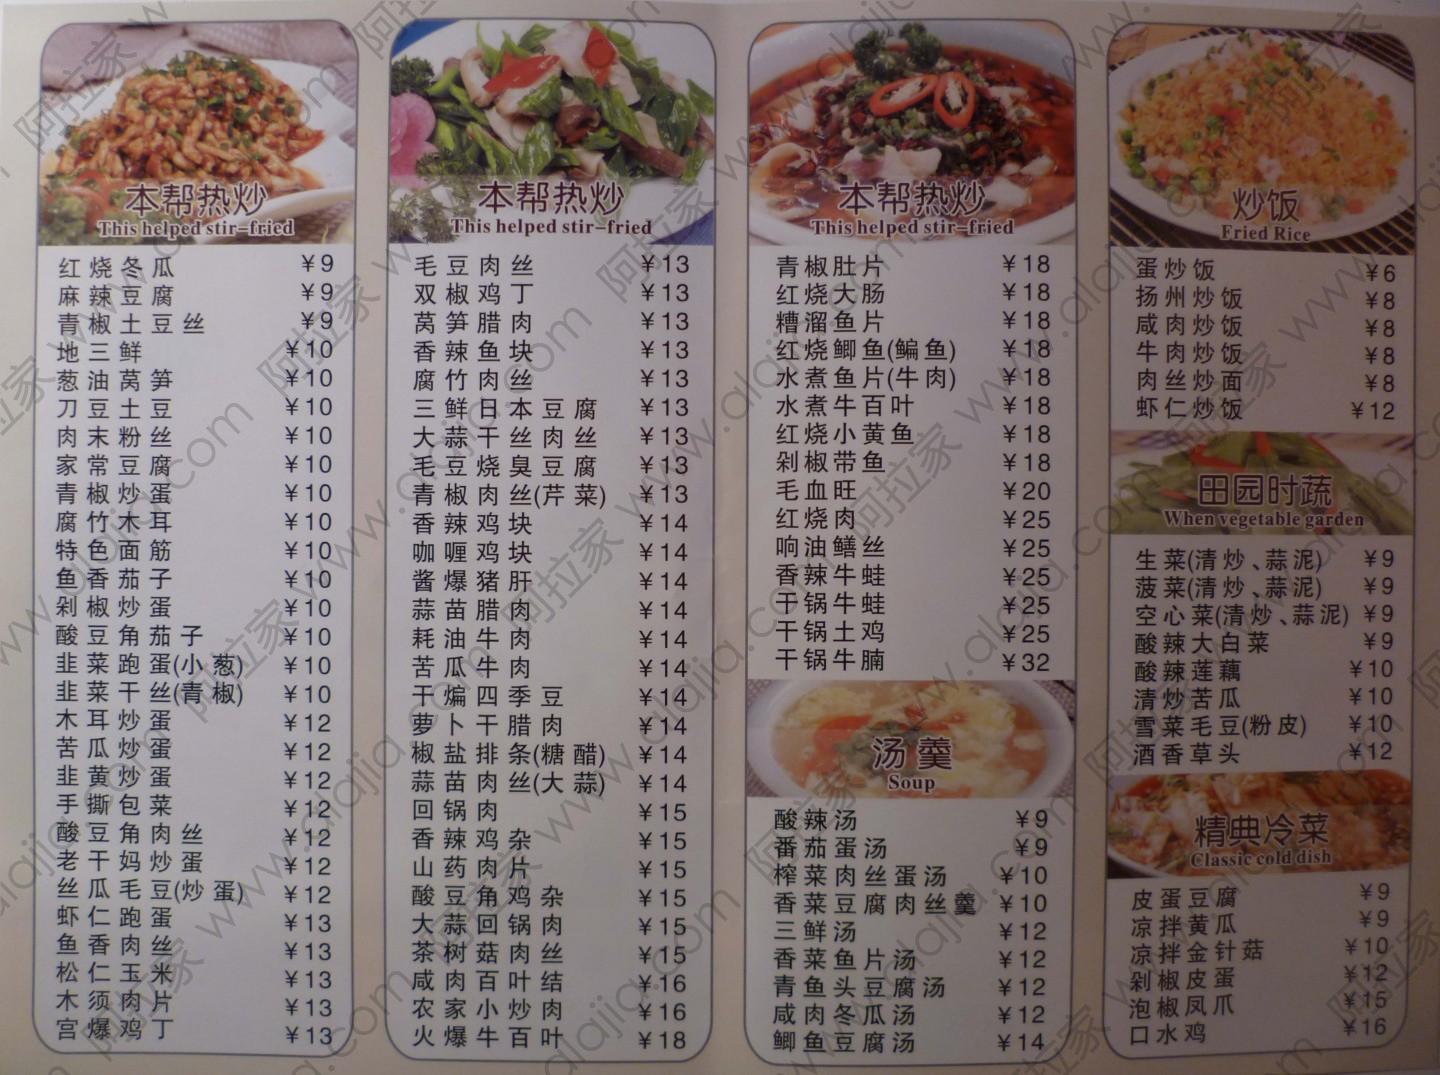 本帮热炒
This helped stir-fried
红烧冬瓜 ¥9
麻辣豆腐 ¥9
青椒土豆丝 ¥9
地三鲜 ¥10
葱油莴笋 ¥10
刀豆土豆 ¥10
肉末粉丝 ¥10
家常豆腐 ¥10
青椒炒蛋 ¥10
腐竹木耳 ¥10
特色面筋 ¥10
鱼香茄子 ¥10
剁椒炒蛋 ¥10
酸豆角茄子 ¥10
韭菜跑蛋(小葱) ¥10
韭菜干丝(青椒) ¥10
木耳炒蛋 ¥12
苦瓜炒蛋 ¥12
韭黄炒蛋 ¥12
手撕包菜 ¥12
酸豆角肉丝 ¥12
老干妈炒蛋 ¥12
丝瓜毛豆(炒蛋) ¥12
虾仁跑蛋 ¥13
鱼香肉丝 ¥13
松仁玉米 ¥13
木须肉片 ¥13
宫爆鸡丁 ¥13
本帮热炒
This helped stir-fried
毛豆肉丝 ¥13
双椒鸡丁 ¥13
莴笋腊肉 ¥13
香辣鱼块 ¥13
腐竹肉丝 ¥13
三鲜日本豆腐 ¥13
大蒜干丝肉丝 ¥13
毛豆烧臭豆腐 ¥13
青椒肉丝(芹菜) ¥13
香辣鸡块 ¥14
咖喱鸡块 ¥14
酱爆猪肝 ¥14
蒜苗腊肉 ¥14
耗油牛肉 ¥14
苦瓜牛肉 ¥14
干煸四季豆 ¥14
萝卜干腊肉 ¥14
椒盐排条(糖醋) ¥14
蒜苗肉丝(大蒜) ¥14
回锅肉 ¥15
香辣鸡杂 ¥15
山药肉片 ¥15
酸豆角鸡杂 ¥15
大蒜回锅肉 ¥15
茶树菇肉丝 ¥15
咸肉百叶结 ¥16
农家小炒肉 ¥16
火爆牛百叶 ¥18
本帮热炒
This helped stir-fried
青椒肚片 ¥18
红烧大肠 ¥18
糟溜鱼片 ¥18
红烧鲫鱼(鳊鱼) ¥18
水煮鱼片(牛肉) ¥18
水煮牛百叶 ¥18
红烧小黄鱼 ¥18
剁椒带鱼 ¥18
毛血旺 ¥20
红烧肉 ¥25
响油鳝丝 ¥25
香辣牛蛙 ¥25
干锅牛蛙 ¥25
干锅土鸡 ¥25
干锅牛腩 ¥32
汤羹
Soup
酸辣汤 ¥9
番茄蛋汤 ¥9
榨菜肉丝蛋汤 ¥10
香菜豆腐肉丝羹 ¥10
三鲜汤 ¥12
香菜鱼片汤 ¥12
青鱼头豆腐汤 ¥12
咸肉冬瓜汤 ¥12
鲫鱼豆腐汤 ¥14
炒饭
Fried Rice
蛋炒饭 ¥6
扬州炒饭 ¥8
咸肉炒饭 ¥8
牛肉炒饭 ¥8
肉丝炒面 ¥8
虾仁炒饭 ¥12
田园时蔬
When vegetable garden
生菜(清炒、蒜泥) ¥9
菠菜(清炒、蒜泥) ¥9
空心菜(清炒、蒜泥) ¥9
酸辣大白菜 ¥9
酸辣莲藕 ¥10
清炒苦瓜 ¥10
雪菜毛豆(粉皮) ¥10
酒香草头 ¥12
精典冷菜
Classic cold dish
皮蛋豆腐 ¥9
凉拌黄瓜 ¥9
凉拌金针菇 ¥10
剁椒皮蛋 ¥12
泡椒凤爪 ¥15
口水鸡 ¥16
阿拉家 www.alajia.com